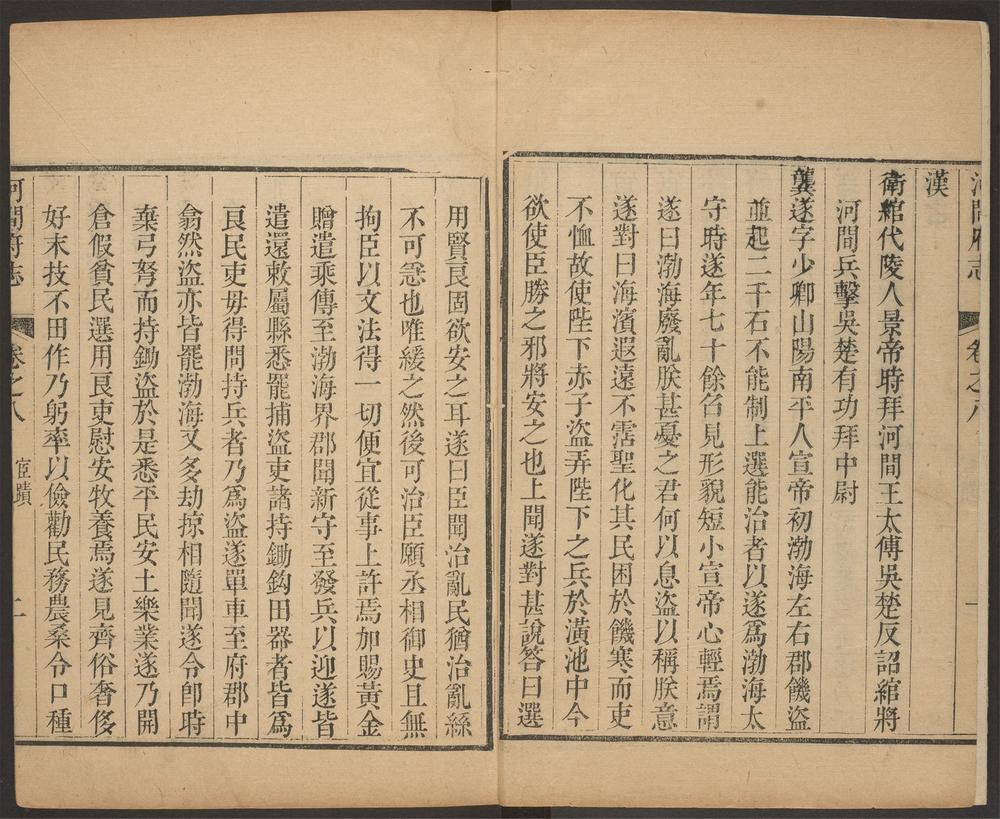 河間府志
卷之八
一
漢
衛綰代陵人景帝時拜河間王太傅吳楚反詔綰將
河間兵擊吳楚有功拜中尉
龔遂字少卿山陽南平人宣帝初渤海左右郡饑盜
並起二千石不能制上選能治者以遂爲渤海太
守時遂年七十餘召見形貌短小宣帝心輕焉謂
遂曰渤海廢亂朕甚憂之君何以息盜以稱朕意
遂對曰海濱遐遠不霑聖化其民困於饑寒而吏
不恤故使陛下赤子盜弄陛下之兵於潢池中今
欲使臣勝之邪將安之也上聞遂對甚說答曰選
用賢良固欲安之耳遂曰臣聞治亂民猶治亂絲
不可急也唯緩之然後可治臣願丞相御史且無
拘臣以文法得一切便宜從事上許焉加賜黃金
贈遣乘傳至渤海界郡聞新守至發兵以迎遂皆
遣還敕屬縣悉罷捕盜吏諸持鋤鈎田器者皆爲
良民吏毋得問持兵者乃爲盜遂單車至府郡中
翕然盜亦皆罷渤海又多劫掠相隨聞遂令卽時
棄弓弩而持鋤盜於是悉平民安土樂業遂乃開
倉假貧民選用良吏慰安牧養焉遂見齊俗奢侈
好末技不田作乃躬率以儉勸民務農桑令口種
河間府志
卷之八
宦蹟
二